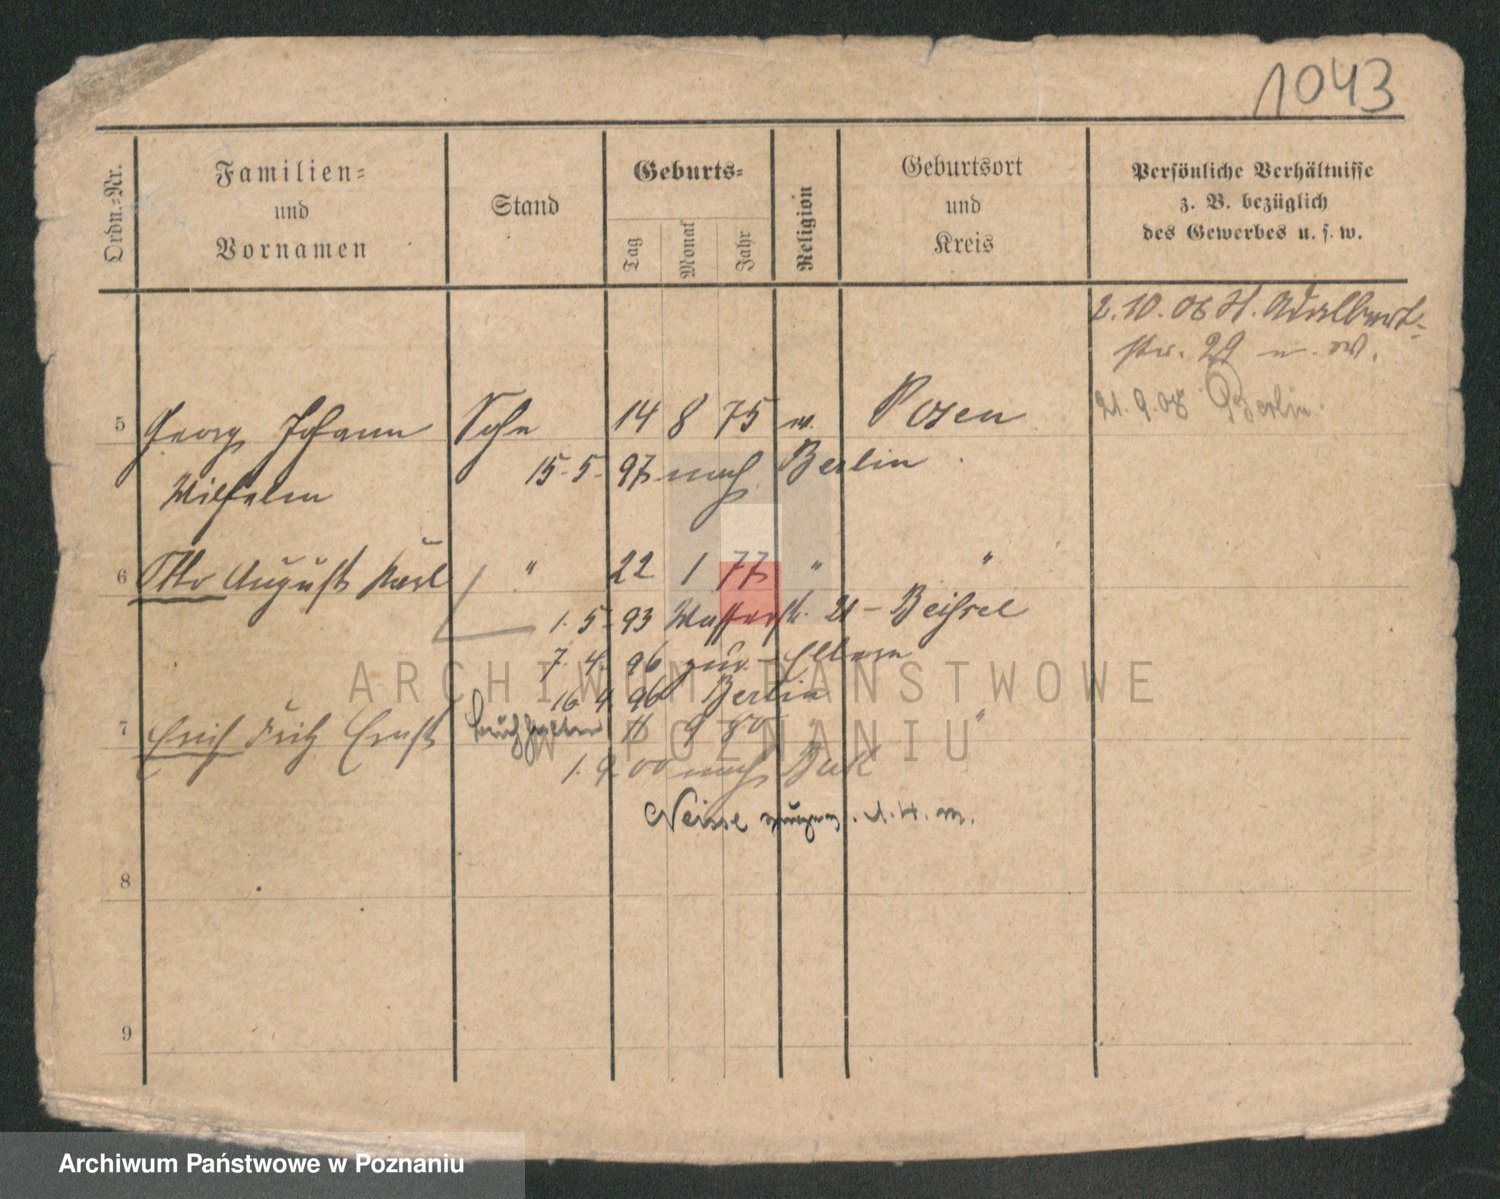 1043
Ordn.-Nr.
Familien-
und
Vornamen
Stand
Geburts-
Tag
Monat
Jahr
Religion
Geburtsort
und
Kreis
Persönliche Verhältnisse
z. B. bezüglich
des Gewerbes u. s. w.
2.10.06 H. Adalbert-
str. 29 u. w.
21.9.08 Berlin.
5 Georg Johann Sohn 14 8 75 Posen
15. 5. 97 nach Berlin
Wilhelm
6 Otto August Karl " 22 1 77 " "
1. 5. 93 Wasserstr. 21 -
7. 4. 96 zur. Eltern
16 9 96 Berlin
7 Erich Fritz Ernst Buchhalter 11 9 80 "
1. 9 00 nach Buk
Neisse
8
9
ARCHIWUM PAŃSTWOWE
W POZNANIU
Archiwum Państwowe w Poznaniu